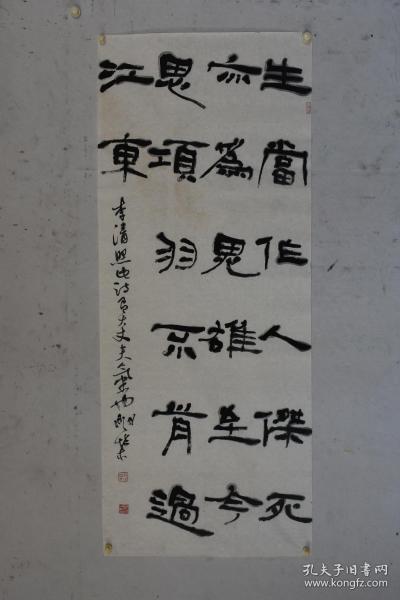 生當作人傑死
亦為鬼雄至今
思項羽不肯過
江東
李清照此詩有大丈夫氣
孔夫子旧书网
www.kongfz.com